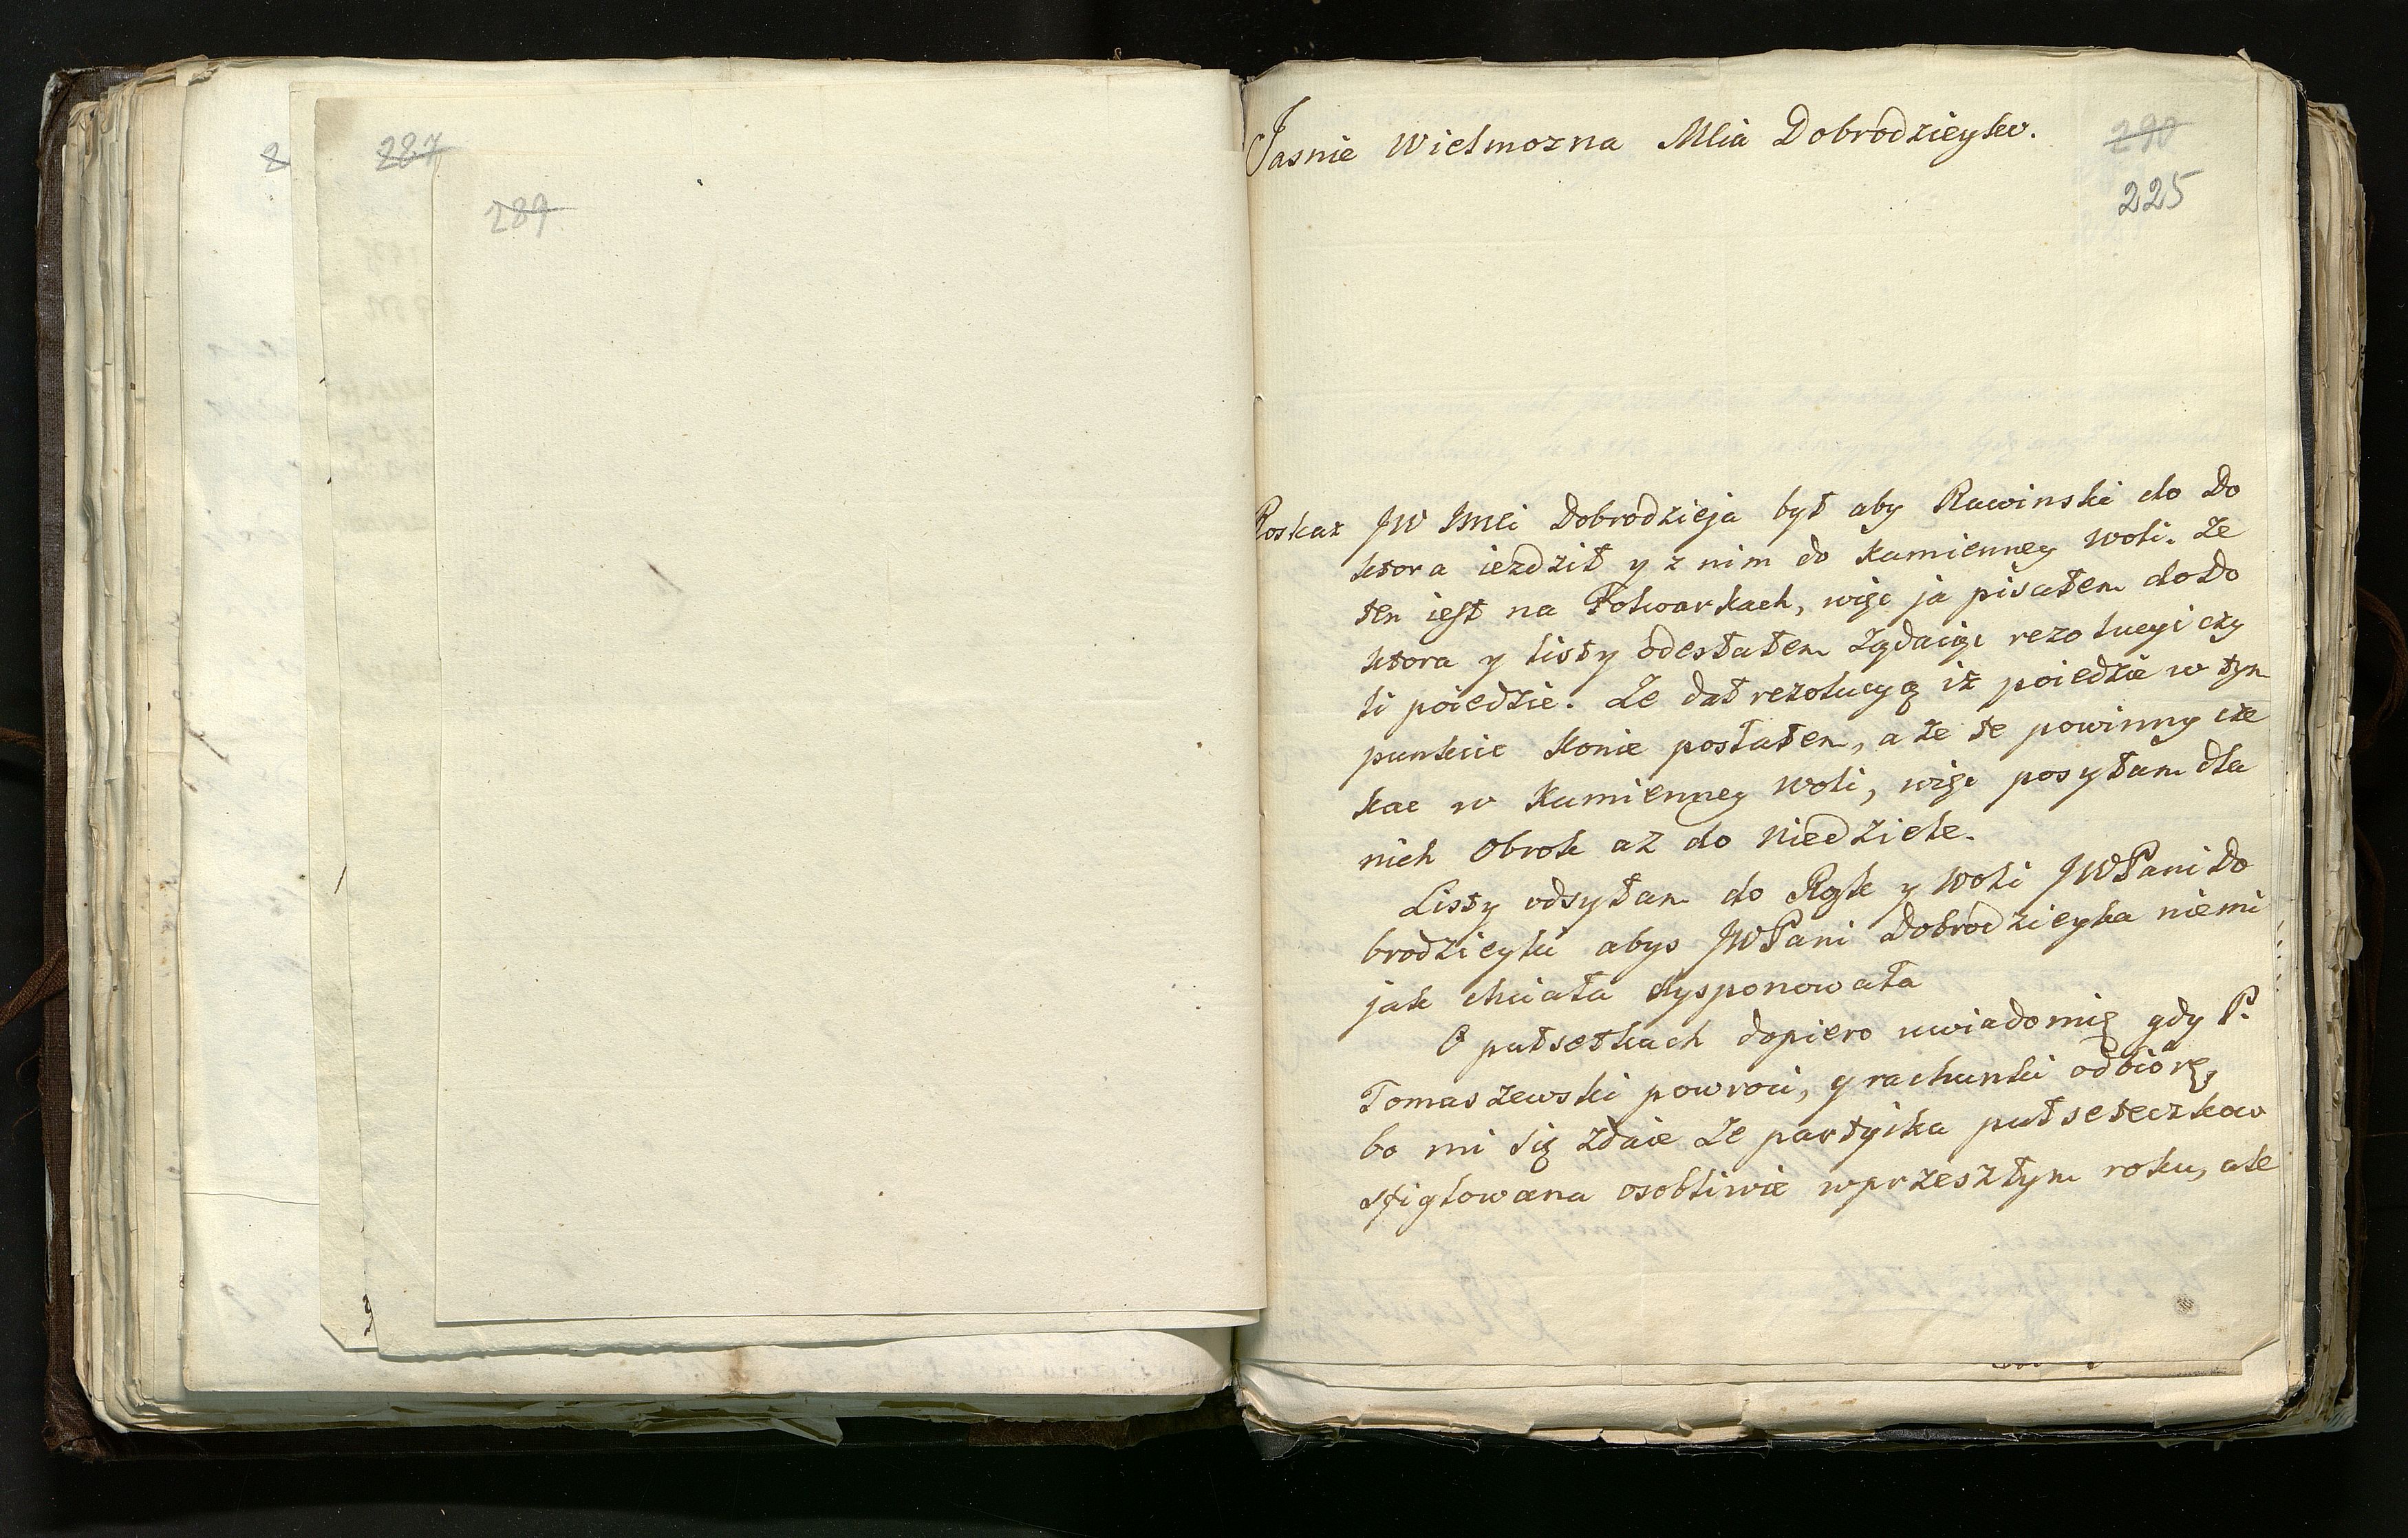 8
287
289
290
225
Jasnie Wielmozna Mcia Dobrodzieyko.
Roskaz JW Jmci Dobrodzieja był aby Rawinski do Do
ktora iezdził y z nim do Kamienney Woli. Ze
ten iest na Folwarkach, więc ja pisałem do Do
ktora y listy odesłałem ządaiąc rezolucyi czy
li poiedzie. Ze dał rezolucyą iż poiedzie w tym
punkcie Konie posłałem, a że te powinny cze
kac w Kamienney Woli, więc posyłam dla
nich Obrok az do Niedziele.
Listy odsyłam do Rąk y Woli JWPani Do
brodzieyki abys JWPani Dobrodzieyka niemi
jak chciała dysponowała
O pułsetkach dopiero uwiadomię gdy P.
Tomaszewski powroci, y rachunki odbiorę,
bo mi się zdaie ze partyika pułseteczkow
sfiglowana osobliwie w przeszłym roku, ale